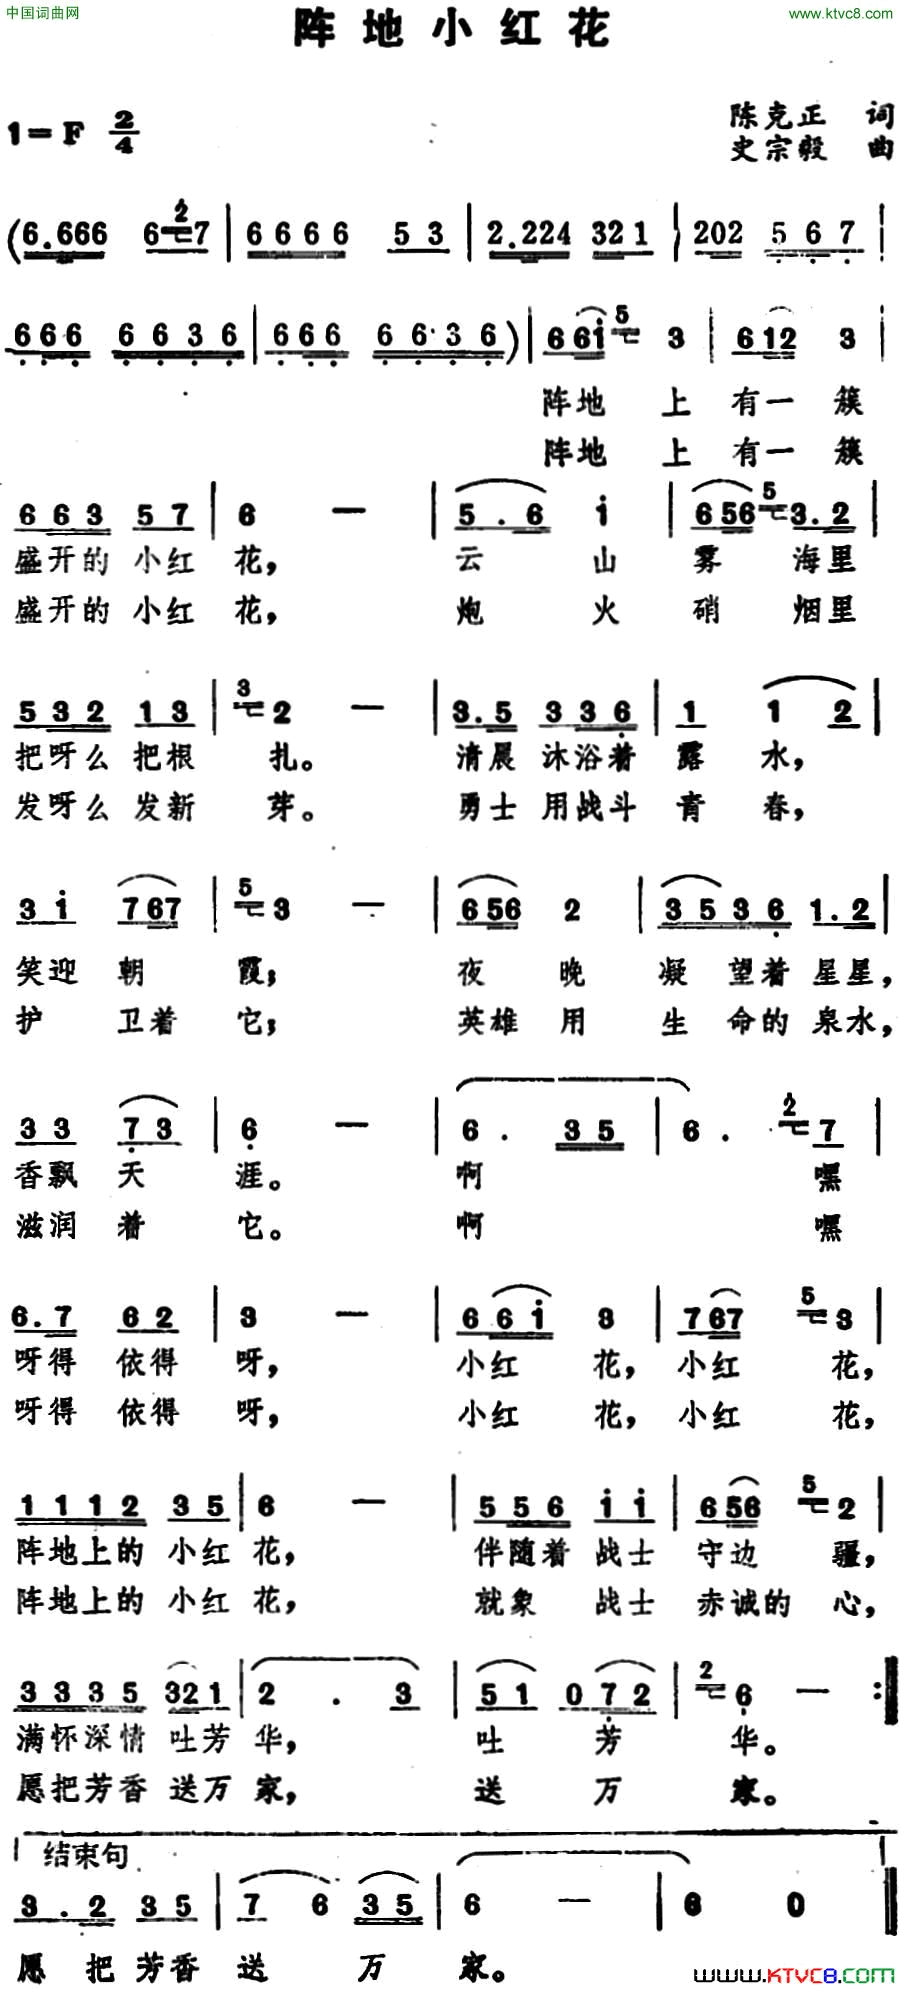 中国词曲网
www.ktvc8.com
阵地小红花
1=F 2/4
陈克正 词
史宗毅 曲
(6.666 6 2 7 | 6666 53 | 2.224 321 | 202 567 |
666 6636 | 666 6636) | 661 5 3 | 612 3 |
阵地 上 有一 簇
阵地 上 有一 簇
663 57 | 6 — | 5.6 i | 656 5 3.2 |
盛开的 小红 花, 云 山 雾 海里
盛开的 小红 花, 炮 火 硝 烟里
532 13 | 3 2 — | 3.5 336 | 1 1 2 |
把呀么 把根 扎。 清晨 沐浴着 露 水,
发呀么 发新 芽。 勇士 用战斗 青 春,
3i 767 | 5 3 — | 656 2 | 3536 1.2 |
笑迎 朝 霞; 夜 晚 凝 望着 星星,
护 卫着 它; 英雄 用 生 命的 泉水,
33 73 | 6 — | 6. 35 | 6. 2 7 |
香飘 天 涯。 啊 嘿
滋润 着 它。 啊 嘿
6.7 62 | 3 — | 66i 3 | 767 5 3 |
呀得 依得 呀, 小红 花, 小红 花,
呀得 依得 呀, 小红 花, 小红 花,
1112 35 | 6 — | 556 ii | 656 5 2 |
阵地上的 小红 花, 伴随着 战士 守边 疆,
阵地上的 小红 花, 就象 战士 赤诚的 心,
3335 321 | 2 . 3 | 51 072 | 2 6 — :‖
满怀深情 吐芳 华, 吐 芳 华。
愿把芳香 送万 家, 送 万 家。
结束句
3.2 35 | 7 6 35 | 6 — | 6 0 ‖
愿 把 芳香 送 万 家。
www.KTVC8.COM